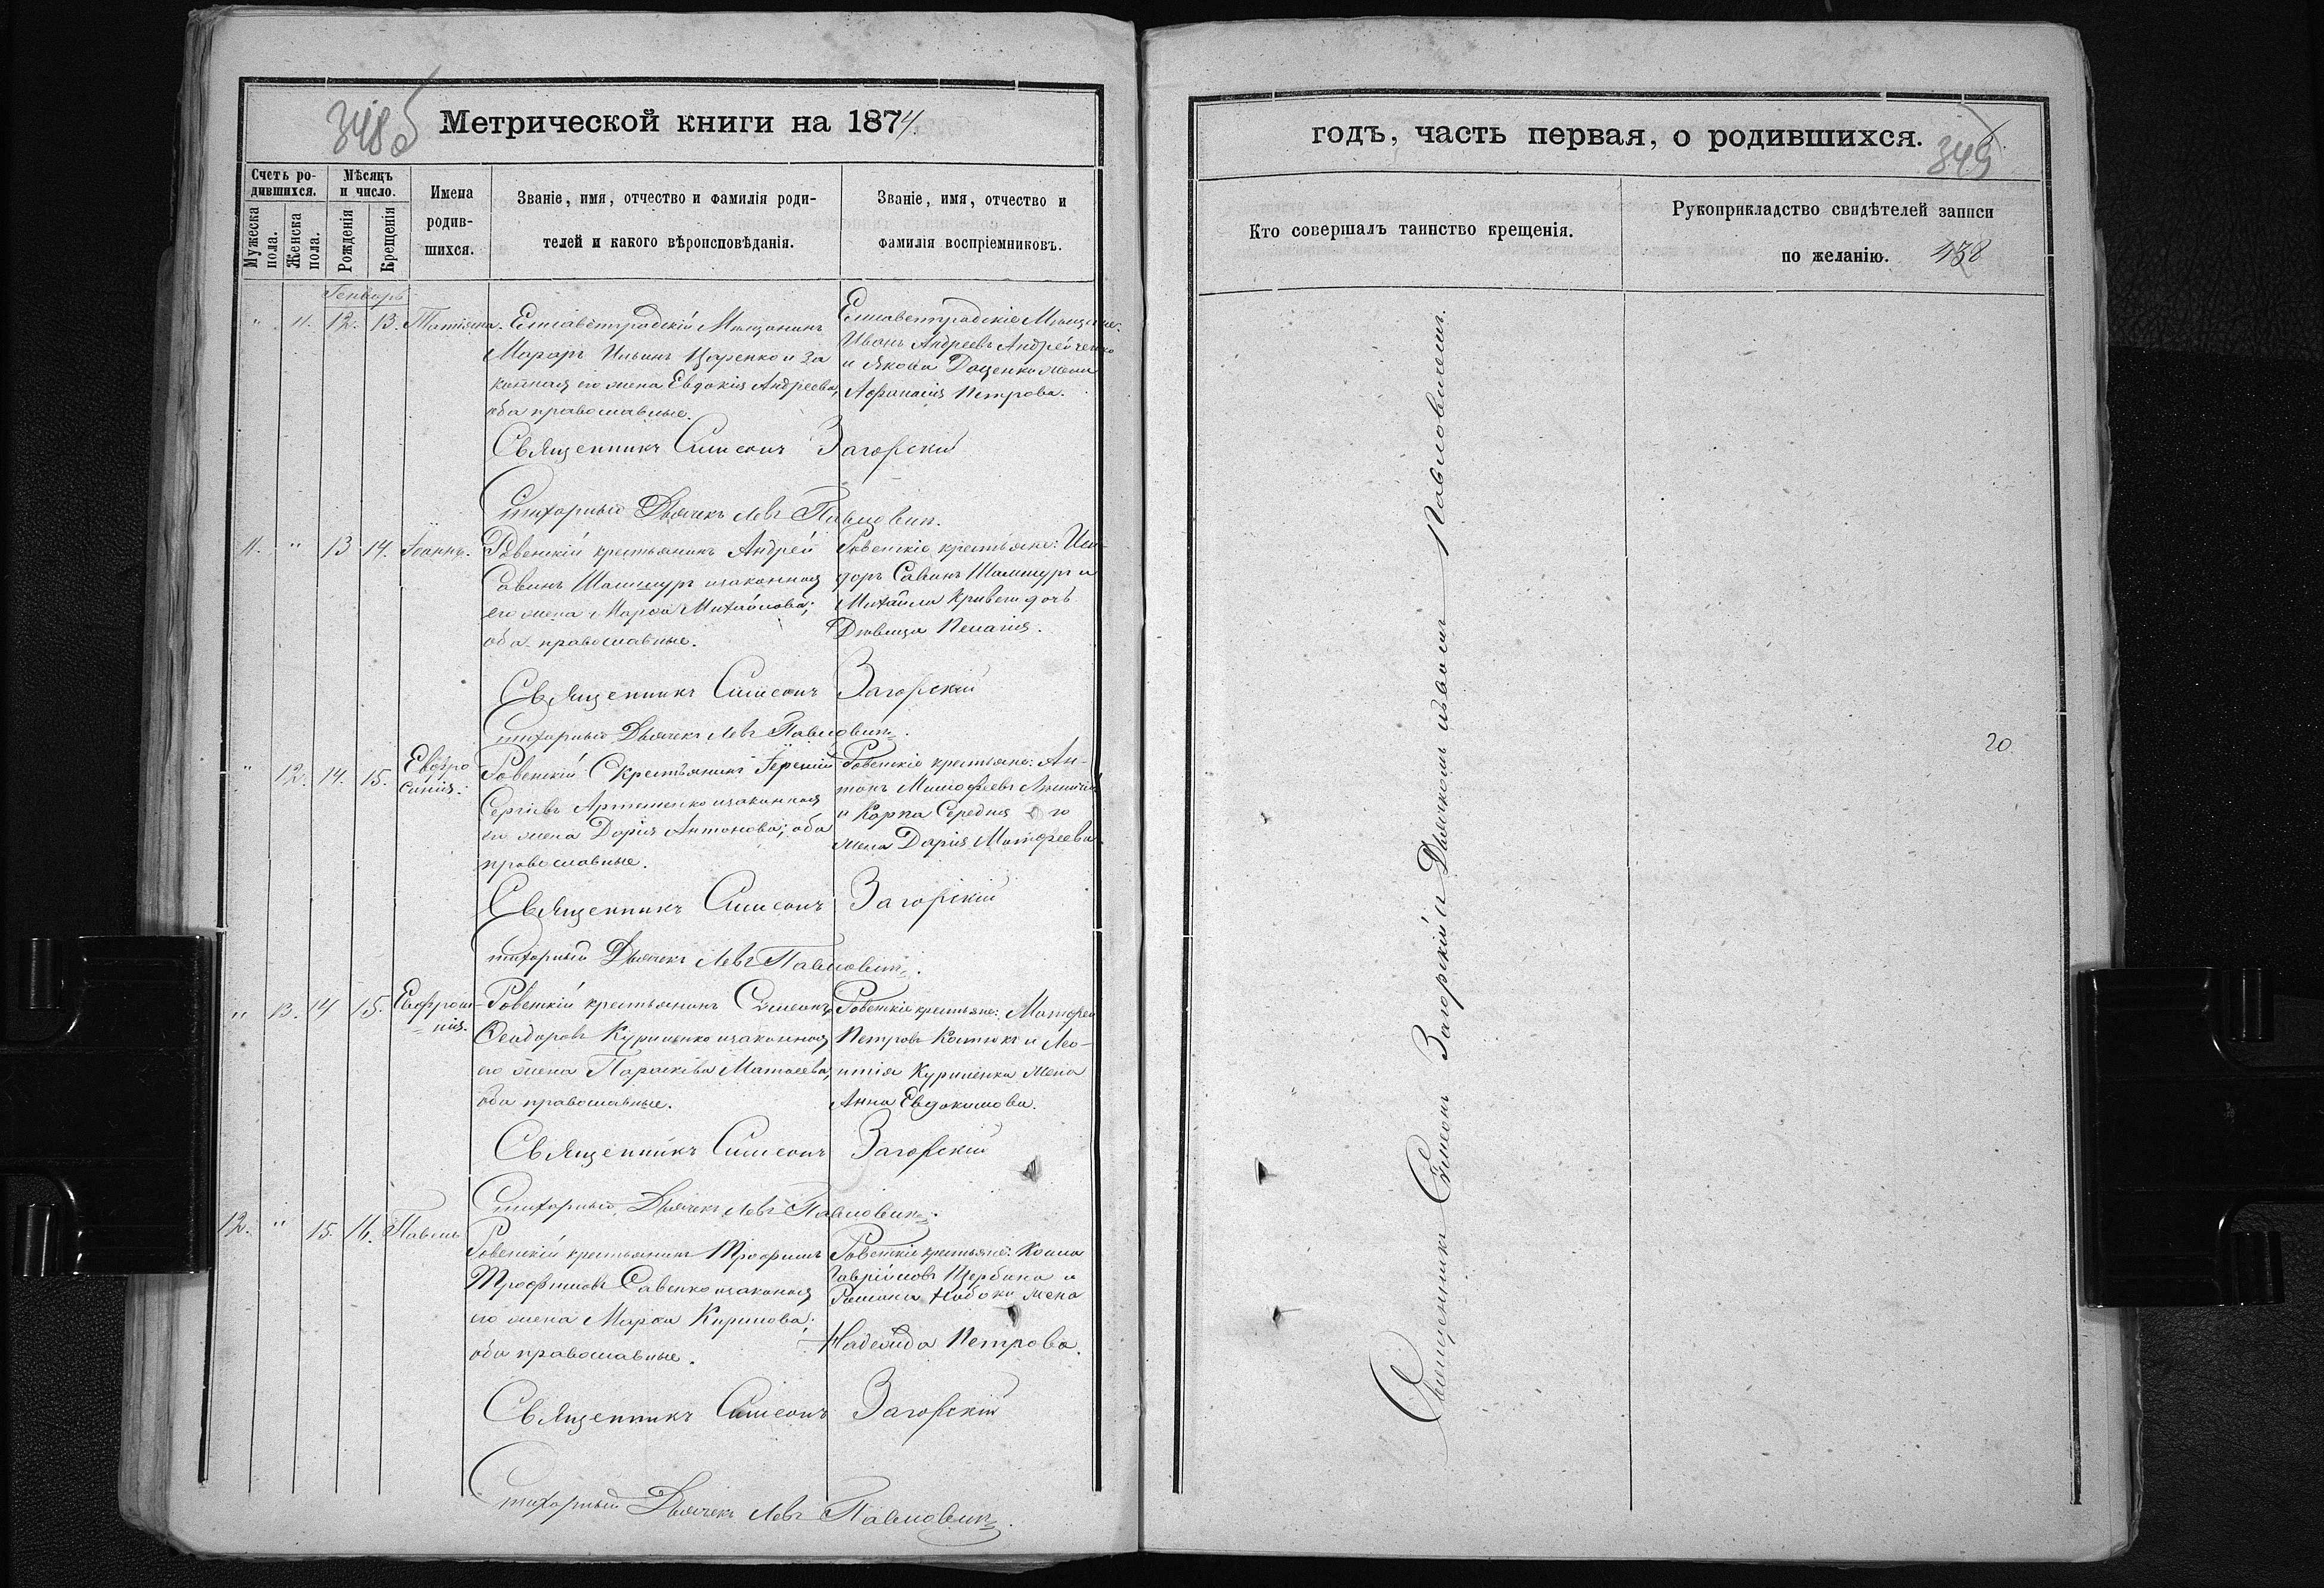 348 об
Метрической книги на 1874
Счетъ ро-
дившихся.
Мѣсяцъ
и число.
Мужеска
пола.
Женска
пола.
Рожденія
Крещенія
Имена
родив-
шихся.
Званіе, имя, отчество и фамилія роди-
телей и какого вѣроисповѣданія.
Званіе, имя, отчество и
фамилія воспріемниковъ.
Генварь
" 11. 12. 13. Татіяна.
Елисаветградскій Мѣщанинъ
Макаръ Ильинъ Царенко и за
конная его жена Евдокія Андреева,
оба православные.
Елисаветградскіе Мѣщане:
Иванъ Андреевъ Андрейченко
и Якова Доценко жена
Афанасія Петрова.
Священникъ Симеонъ Загорскій
Стихарный Дьячекъ Левъ Павловичъ.
11. " 13 14. Іоаннъ.
Ровенскій крестьянинъ Андрей
Савинъ Шамшуръ и законная
его жена Марѳа Михайлова;
оба православные.
Ровенскіе крестьяне: Иси-
доръ Савинъ Шамшуръ и
Михаила дочь
Дѣвица Пелагія.
Священникъ Симеонъ Загорскій
Стихарный Дьячекъ Левъ Павловичъ.
" 12. 14. 15. Евфро
синія.
Ровенскій Крестьянинъ
Сергіевъ Артеменко и законная
его жена Дарія Антонова; оба
православные.
Ровенскіе крестьяне: Ан-
тонъ
и Карпа Середня
жена Дарія Матфеева.
Священникъ Симеонъ Загорскій
Стихарный Дьячекъ Левъ Павловичъ.
" 13. 14 15. Евфроси-
нія.
Ровенскій крестьянинъ Сѵмеонъ
Ѳеодоровъ Куриленко и законная
его жена Параскева Матѳеева,
оба православные.
Ровенскіе крестьяне: Матфей
Петровъ Костюкъ и Лео-
нтія Куриленка жена
Анна Евдокимова.
Священникъ Симеонъ Загорскій
Стихарный Дьячекъ Левъ Павловичъ.
12. " 15. 16. Павелъ
Ровенскій крестьянинъ Трофимъ
Трофимовъ Савенко и законная
его жена Марѳа Кирилова;
оба православные.
Ровенскіе крестьяне: Косма
Гавріиловъ Щербина и
Романа Набоки жена
Надежда Петрова.
Священникъ Симеонъ Загорскій
Стихарный Дьячекъ Левъ Павловичъ.
годъ, часть первая, о родившихся.
349
Кто совершалъ таинство крещенія.
Рукоприкладство свидѣтелей записи
по желанію. 438
Священникъ Сѵмеонъ Загорскій съ Дьячкомъ Львомъ Павловичемъ.
20